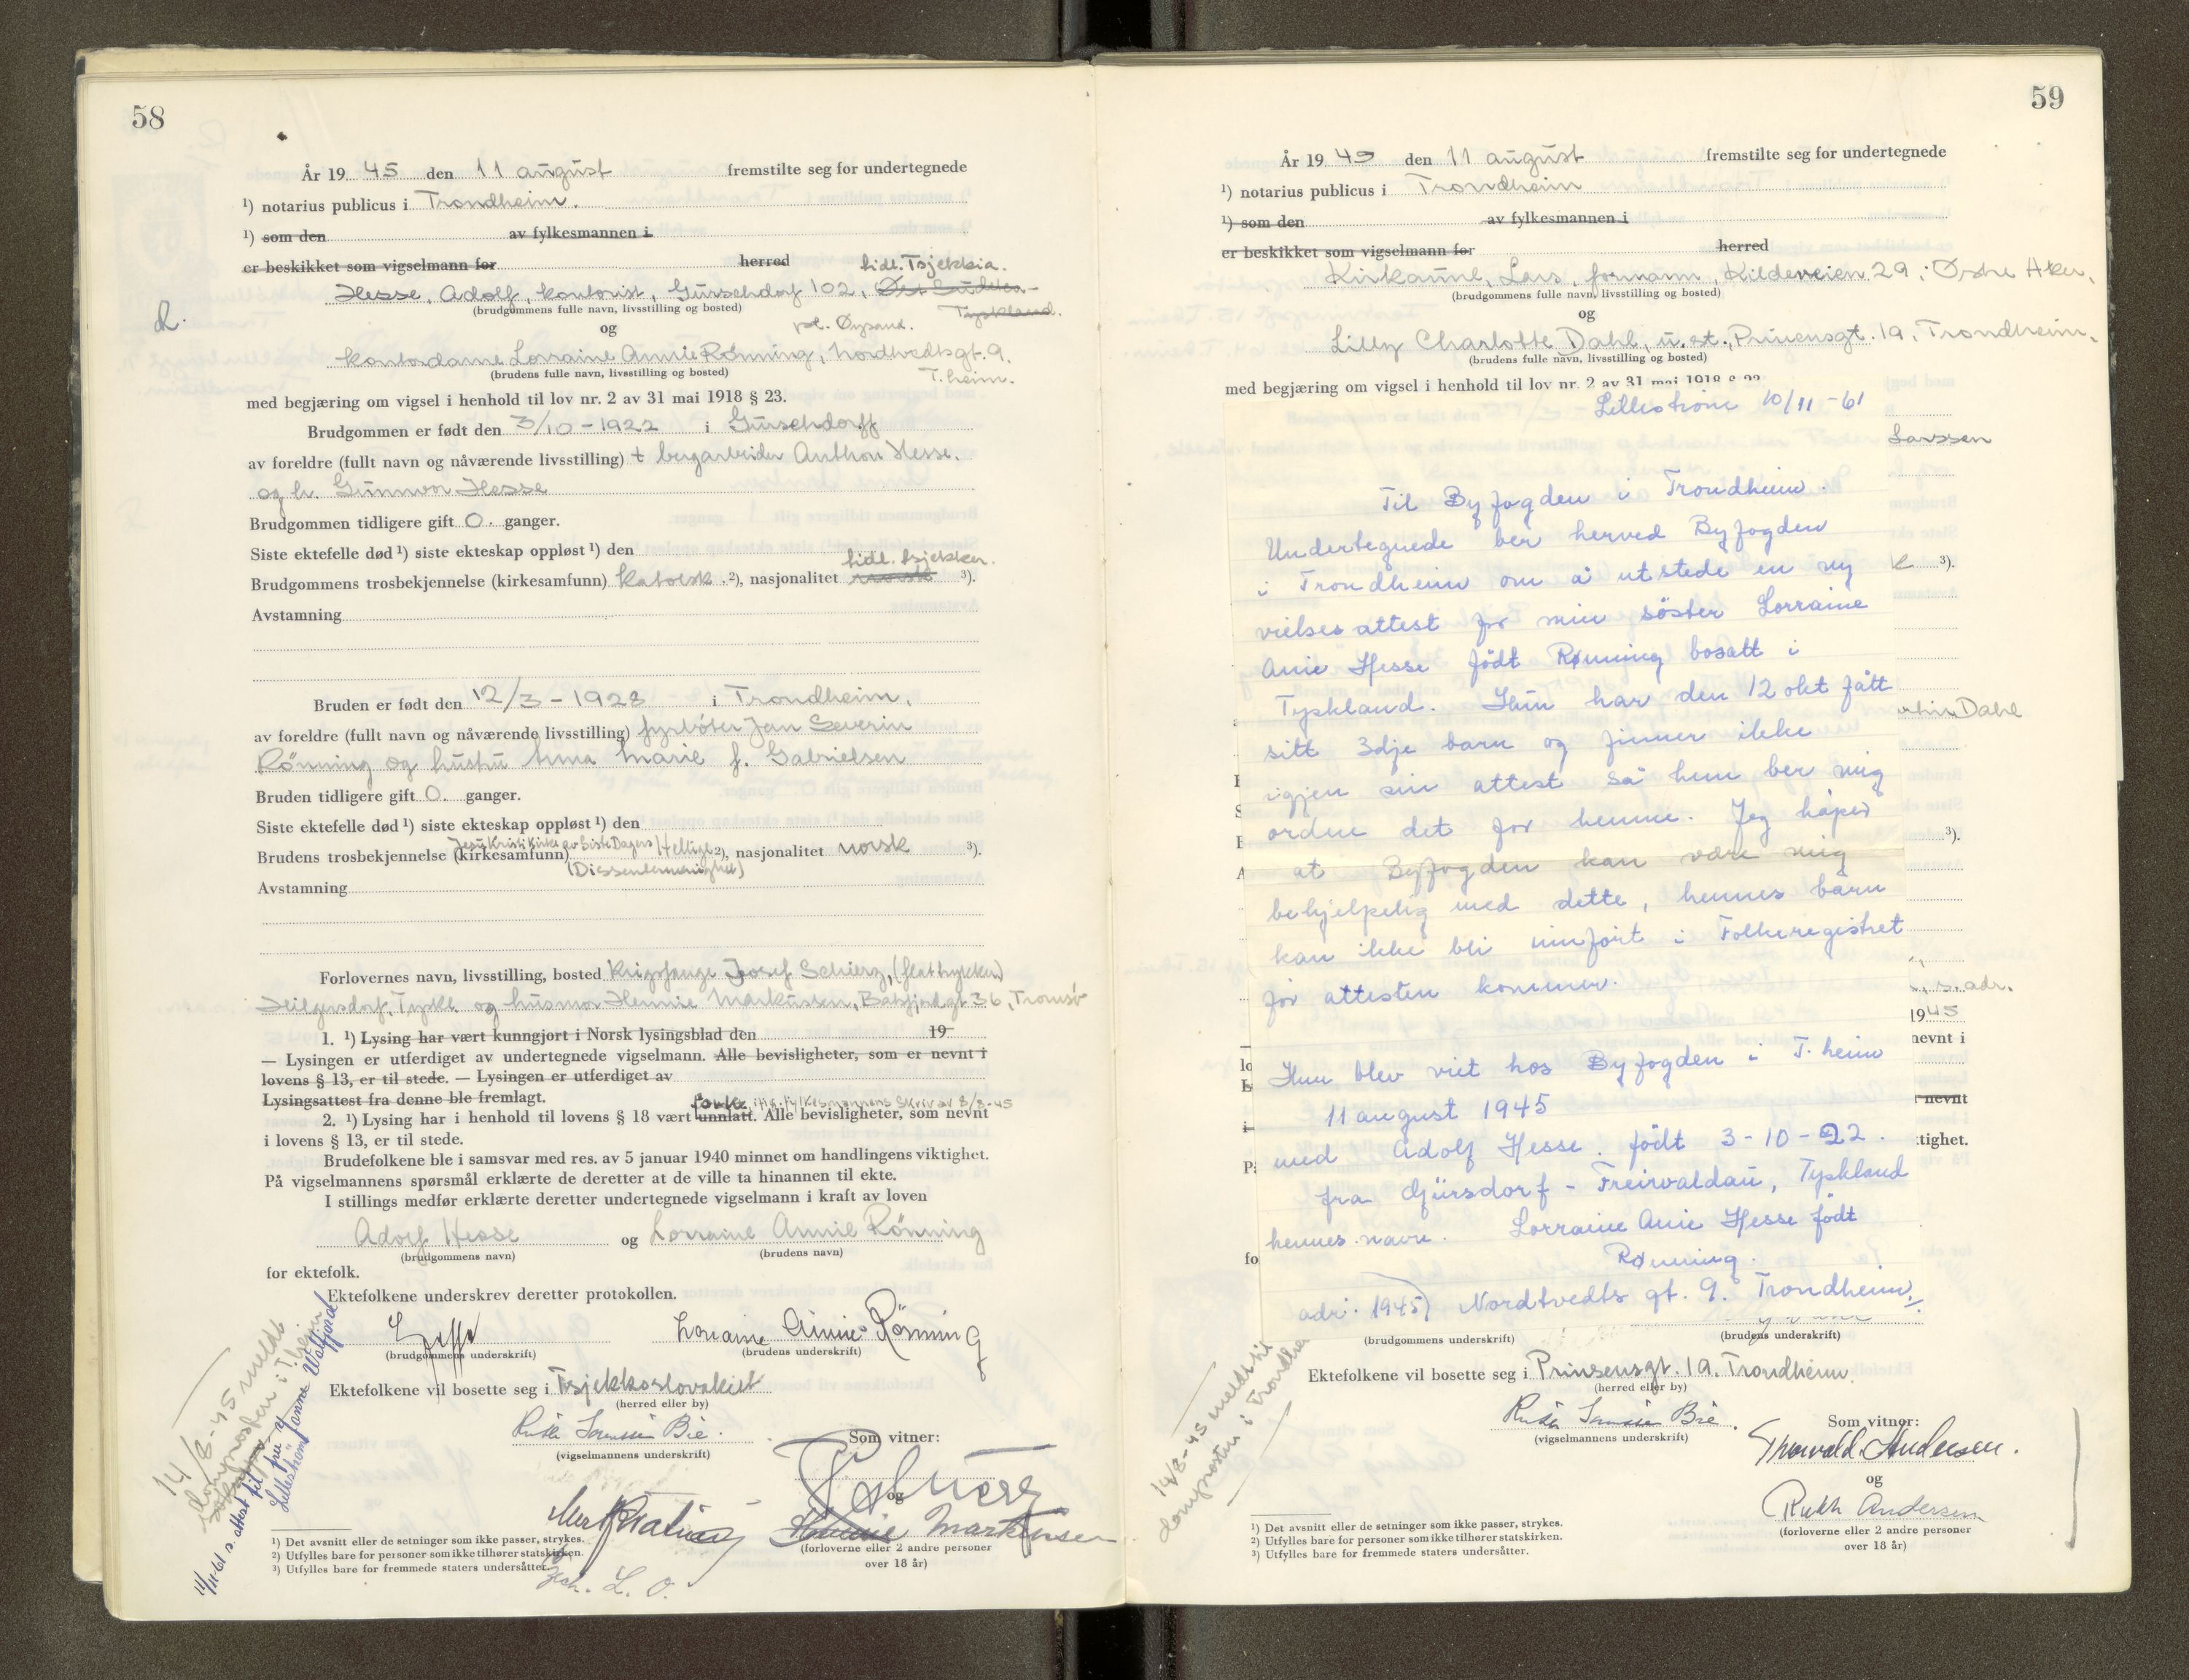 58
År 19 45 den 11 august fremstilte seg for undertegnede
¹) notarius publicus i Trondheim.
¹) som den av fylkesmannen i
er beskikket som vigselmann for herred tidl. Tsjekkia.
Hesse, Adolf, kontorist, Gurschdorf 102, Øst Sudeten
(brudgommens fulle navn, livsstilling og bosted) Tyskland.
og pt. Øysand.
kontordame Lorraine Annie Rönning, Nordtvedtsgt. 9.
(brudens fulle navn, livsstilling og bosted) T.heim.
med begjæring om vigsel i henhold til lov nr. 2 av 31 mai 1918 § 23.
Brudgommen er født den 3/10 - 1922 i Gurschdorff
av foreldre (fullt navn og nåværende livsstilling) + bergarbeider Anthon Hesse.
og h. Gunnvor Hesse
Brudgommen tidligere gift 0. ganger.
Siste ektefelle død ¹) siste ekteskap oppløst ¹) den
tidl. tsjekker.
Brudgommens trosbekjennelse (kirkesamfunn) katolsk. ²), nasjonalitet norsk ³).
Avstamning
Bruden er født den 12/3 - 1928 i Trondheim.
av foreldre (fullt navn og nåværende livsstilling) fyrbøter Jan Severin
Rönning og hustru Anna Marie f. Gabrielsen
Bruden tidligere gift 0. ganger.
Siste ektefelle død ¹) siste ekteskap oppløst ¹) den
Jesu Kristi Kirke av Siste Dagers Hellige
Brudens trosbekjennelse (kirkesamfunn) ²), nasjonalitet norsk ³).
(Dissentermenighet)
Avstamning
Forlovernes navn, livsstilling, bosted krigsfange Josef Schierz, (flattrykker)
Heilgersdorf, Tyskl. og husmor Hennie Markussen, Balsfjordgt 36, Tromsø
1. ¹) Lysing har vært kunngjort i Norsk lysingsblad den 19
— Lysingen er utferdiget av undertegnede vigselmann. Alle bevisligheter, som er nevnt i
lovens § 13, er til stede. — Lysingen er utferdiget av
Lysingsattest fra denne ble fremlagt.
iflg. fylkesmannens skriv av 8/8-45
2. ¹) Lysing har i henhold til lovens § 18 vært unnlatt. Alle bevisligheter, som nevnt
i lovens § 13, er til stede.
Brudefolkene ble i samsvar med res. av 5 januar 1940 minnet om handlingens viktighet.
På vigselmannens spørsmål erklærte de deretter at de ville ta hinannen til ekte.
I stillings medfør erklærte deretter undertegnede vigselmann i kraft av loven
Adolf Hesse og Lorraine Annie Rönning
(brudgommens navn) (brudens navn)
for ektefolk.
Ektefolkene underskrev deretter protokollen.
Lorraine Annie Rönning
(brudgommens underskrift) (brudens underskrift)
Ektefolkene vil bosette seg i Tsjekkoslovakiet
(herred eller by)
Som vitner:
(vigselmannens underskrift)
og
Hennie Markussen
(forloverne eller 2 andre personer
over 18 år)
14/8-45 meldt
domprosten i T.heim
11/11-61 s. attest til fru
¹) Det avsnitt eller de setninger som ikke passer, strykes.
²) Utfylles bare for personer som ikke tilhører statskirken.
³) Utfylles bare for fremmede staters undersåtter.
59
År 19 45 den 11 august fremstilte seg for undertegnede
¹) notarius publicus i Trondheim
¹) som den av fylkesmannen i
er beskikket som vigselmann for herred
Kirkaune, Lars, formann, Kildeveien 29, Østre Aker.
(brudgommens fulle navn, livsstilling og bosted)
og
Lilly Charlotte Dahl, u. st., Prinsensgt. 1a, Trondheim.
(brudens fulle navn, livsstilling og bosted)
med begjæring om vigsel i henhold til lov nr. 2 av 31 mai 1918 § 23
Lilleström 10/11 - 61
Larssen
Til Byfogden i Trondheim.
Undertegnede ber herved Byfogden
i Trondheim om å utstede en ny
vielses attest for min söster Lorraine
Anie Hesse födt Rønning bosatt i
Tyskland. Hun har den 12 okt fått
sitt 3dje barn og finner ikke
igjen sin attest så hun ber mig
ordne det for henne. Jeg håper
at Byfogden kan være mig
behjelpelig med dette, hennes barn
kan ikke bli innfört i Folkeregistret
för attesten kommer.
Hun blev viet hos Byfogden i T.heim
11 august 1945
med Adolf Hesse. födt 3-10-22.
fra Gürsdorf - Freirvaldau, Tyskland
hennes navn. Lorraine Anie Hesse födt
Rønning.
adr. 1945) Nordtvedts gt. 9. Trondheim.
Dahl
s. adr.
1945
nevnt i
nevnt
tighet.
(brudgommens underskrift) (brudens underskrift)
Ektefolkene vil bosette seg i Prinsensgt. 1a. Trondheim.
(herred eller by)
Som vitner:
(vigselmannens underskrift)
Thorvald Andersen.
og
Ruth Andersen
(forloverne eller 2 andre personer
over 18 år)
14/8-45 meldt til
domprosten i Trondheim
¹) Det avsnitt eller de setninger som ikke passer, strykes.
²) Utfylles bare for personer som ikke tilhører statskirken.
³) Utfylles bare for fremmede staters undersåtter.